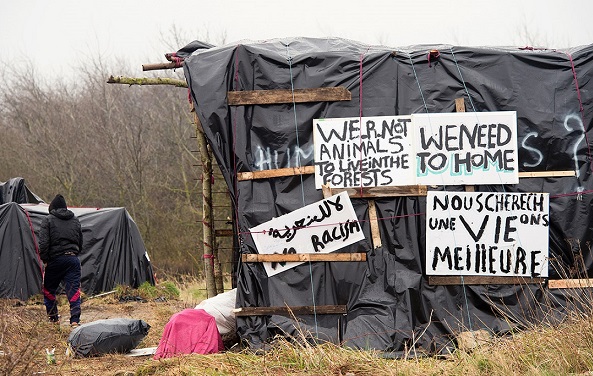 WER NOT
ANIMALS
TO LIVE IN THE
FORESTS
WE NEED
TO HOME
لا للعنصرية
NO RACISM
NOUS CHERECH
ons
UNE VIE
MEillEURE